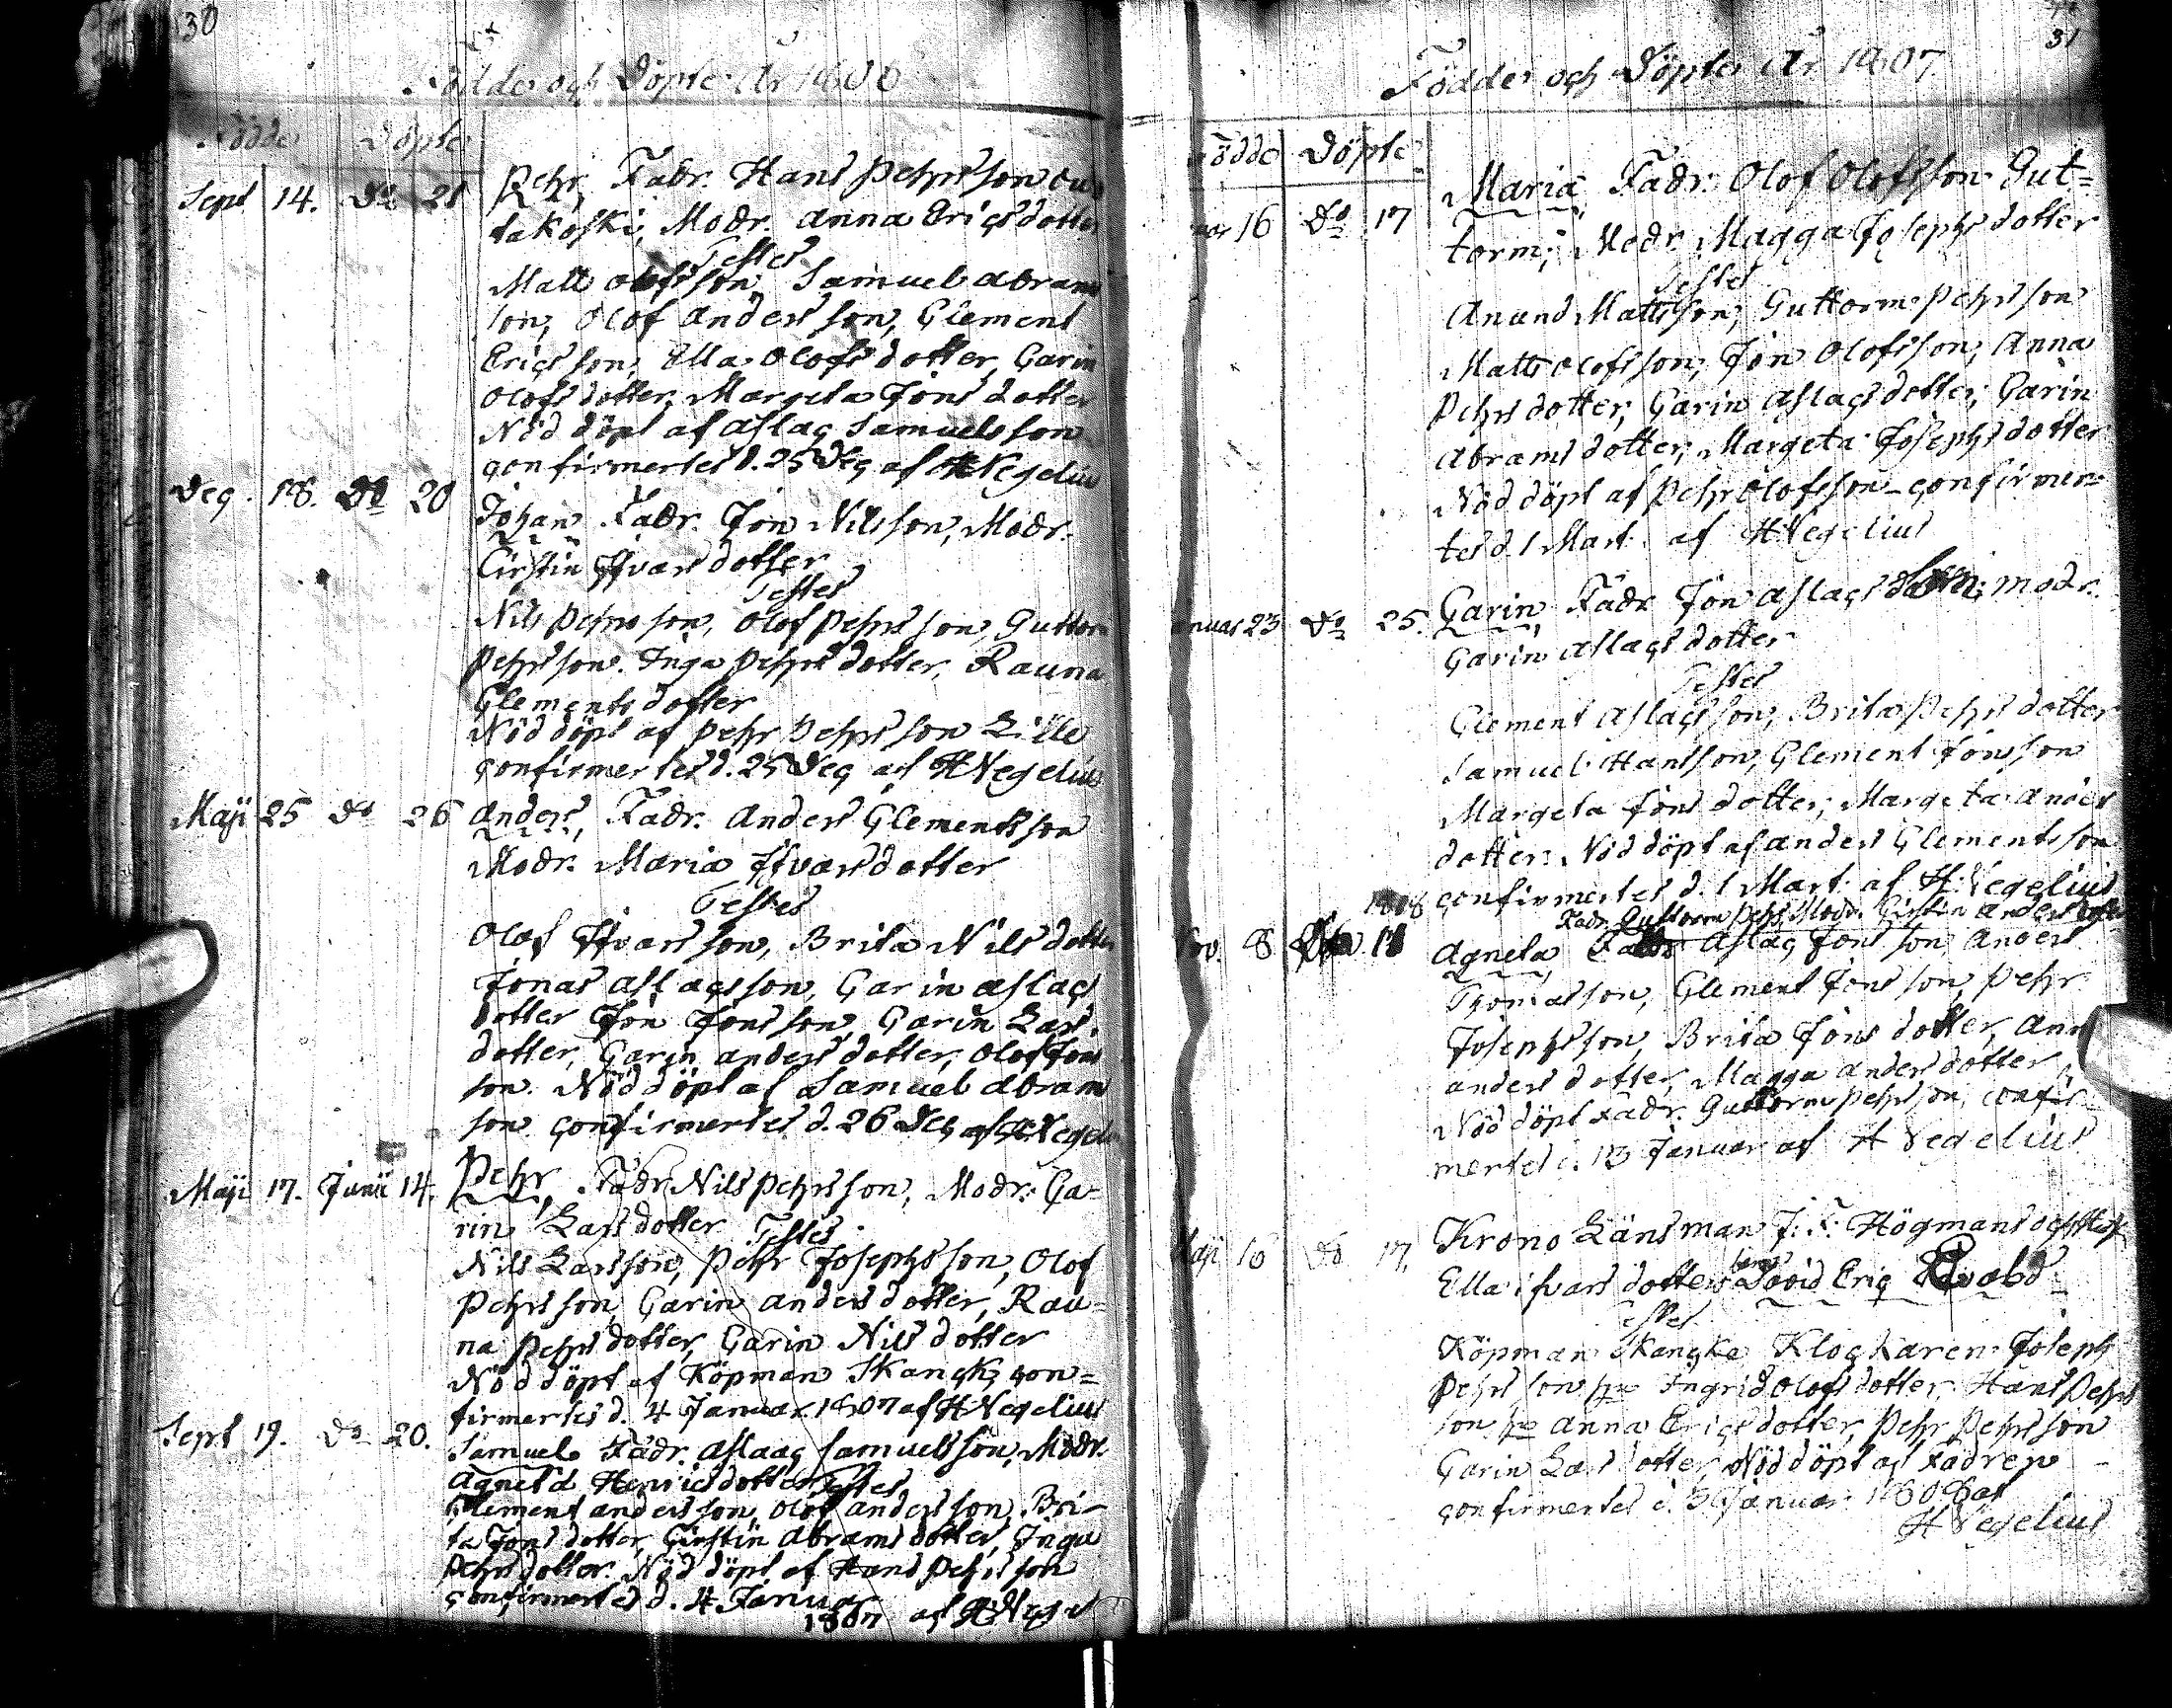 30
Födde och Döpte År 1806
Födde Döpte
Sept 14. Do 21 Pehr, Fadr. Hans Pehrsson Ou-
takoski, Modr. Anna Ericsdotter
Testes
Matt Olofsson, Samuel Abrams
son, Olof Andersson, Clement
Ericsson, Ella Olofsdotter, Carin
Olofsdotter, Margeta Jonsdotter
Nöd döpt af Aslac Samuelsson
confirmertes d. 25 Dec af H Wegelius
Dec. 18. Do 20 Johan Fadr. Jon Nilsson, Modr.
Cirstin Ifvarsdotter
Testes
Nils Pehrsson, Olof Pehrsson, Guttor
Pehrsson. Inga Pehrsdotter, Rauna
Clementsdotter
Nöd döpt af Pehr Pehrsson Lille
confirmertes d. 25 Dec af H Wegelius
Maji 25 Do 26 Anders, Fadr. Anders Clementsson
Modr. Maria Ifvarsdotter
Testes
Olof Ifvarsson, Brita Nilsdotter
Jonas Aslacsson, Carin Aslacs
dotter Jon Jonsson, Carin Lars
dotter, Carin Andersdotter, Olof Jons
son. Nöd döpt af Samuel Abram
son confirmertes d. 26 Dec af H Wegel
Maji 17. Junii 14. Pehr, Fadr. Nils Pehrsson, Modr. Ca=
rin Larsdotter Testes
Nils Larsson, Pehr Josephsson, Olof
Pehrsson, Carin Andersdotter, Rau=
na Pehrsdotter, Carin Nilsdotter
Nöd döpt af Köpman Skanck, con=
firmertes d. 4 Januar. 1807 af H Wegelius
Sept 19. Do 20. Samuel Fadr. Aslaac Samuelsson, Modr.
Agneta Henricsdotter Testes
Clement Andersson, Olof Andersson, Bri-
ta Jonsdotter, Cirstin Abramsdotter, Inga
Pehrsdotter. Nöd döpt af Hans Pehrsson
confirmertes d. 4 Januar
1807 af H Wegel
31
Födde och Döpte År 1807
Födde Döpte
16 Do 17 Maria Fadr. Olof Olofsson Gut=
torm; Modr. Magga Josephsdotter
Testes
Anund Mattsson, Guttorm Pehrsson
Matts Olofsson, Jon Olofsson, Anna
Pehrsdotter, Carin Aslacsdotter, Carin
Abramsdotter, Margeta Josephsdotter
Nöd döpt af Pehr Olofsson - confirmer=
tes d. 1 Mart. af H Wegelius
anuar 23 Do 25. Carin, Fadr Jon Aslacsson; modr.
Carin Aslacsdotter
Testes
Clement Aslacsson, Brita Pehrsdotter
Samuel Hansson, Clement Jonsson
Margeta Jonsdotter; Margeta Anders
dotter. Nöd döpt af Anders Clementsson
confirmertes d. 1 Mart. af H Wegelius
1808
Fadr. Guttorm Pehrs Modr. Cirstin Andersdotter
Nov. 8 Agneta Aslac Jonsson, Anders
Thomasson, Clement Jonsson, Pehr
Josephsson, Brita Jonsdotter, Ann
Andersdotter, Magga Andersdotter,
Nöd döpt Fadr. Guttorm Pehrsson, confir
mertes d. 13 Januar af H Wegelius
Maji 16 Do 17. Krono Länsman J: F: Högmans och
Ella Ifvarsdotters barn David Eric Evald
Testes
Köpman Skancke Klockaren Joseph
Pehrsson Ingrid Olofsdotter, Hans Pehrs
son Anna Ericsdotter, Pehr Pehrsson
Carin Larsdotter, Nöd döpt af Fadren
confirmertes d. 5 Januar. 1808 af
H Wegelius